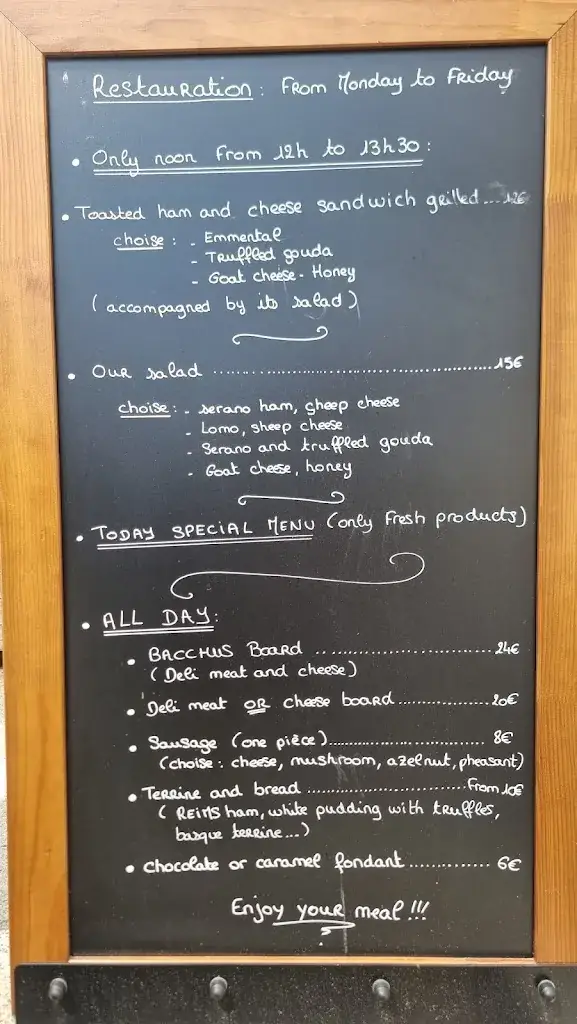 Restauration : From Monday to Friday
• Only noon from 12h to 13h30 :
• Toasted ham and cheese sandwich grilled ... 12€
choise : - Emmental
- Truffled gouda
- Goat cheese - Honey
( accompagned by its salad )
• Our salad ........................ 15€
choise : - serano ham, sheep cheese
- Lomo, sheep cheese
- Serano and truffled gouda
- Goat cheese, honey
• TODAY SPECIAL MENU (only fresh products)
• ALL DAY :
• BACCHUS Board ........................ 24€
( Deli meat and cheese )
• Deli meat OR cheese board ............... 20€
• Sausage (one pièce) ........................ 8€
(choise : cheese, mushroom, azelnut, pheasant)
• Terrine and bread ........................ From 10€
( REIMS ham, white pudding with truffles,
basque terrine ... )
• chocolate or caramel fondant ............ 6€
Enjoy your meal !!!